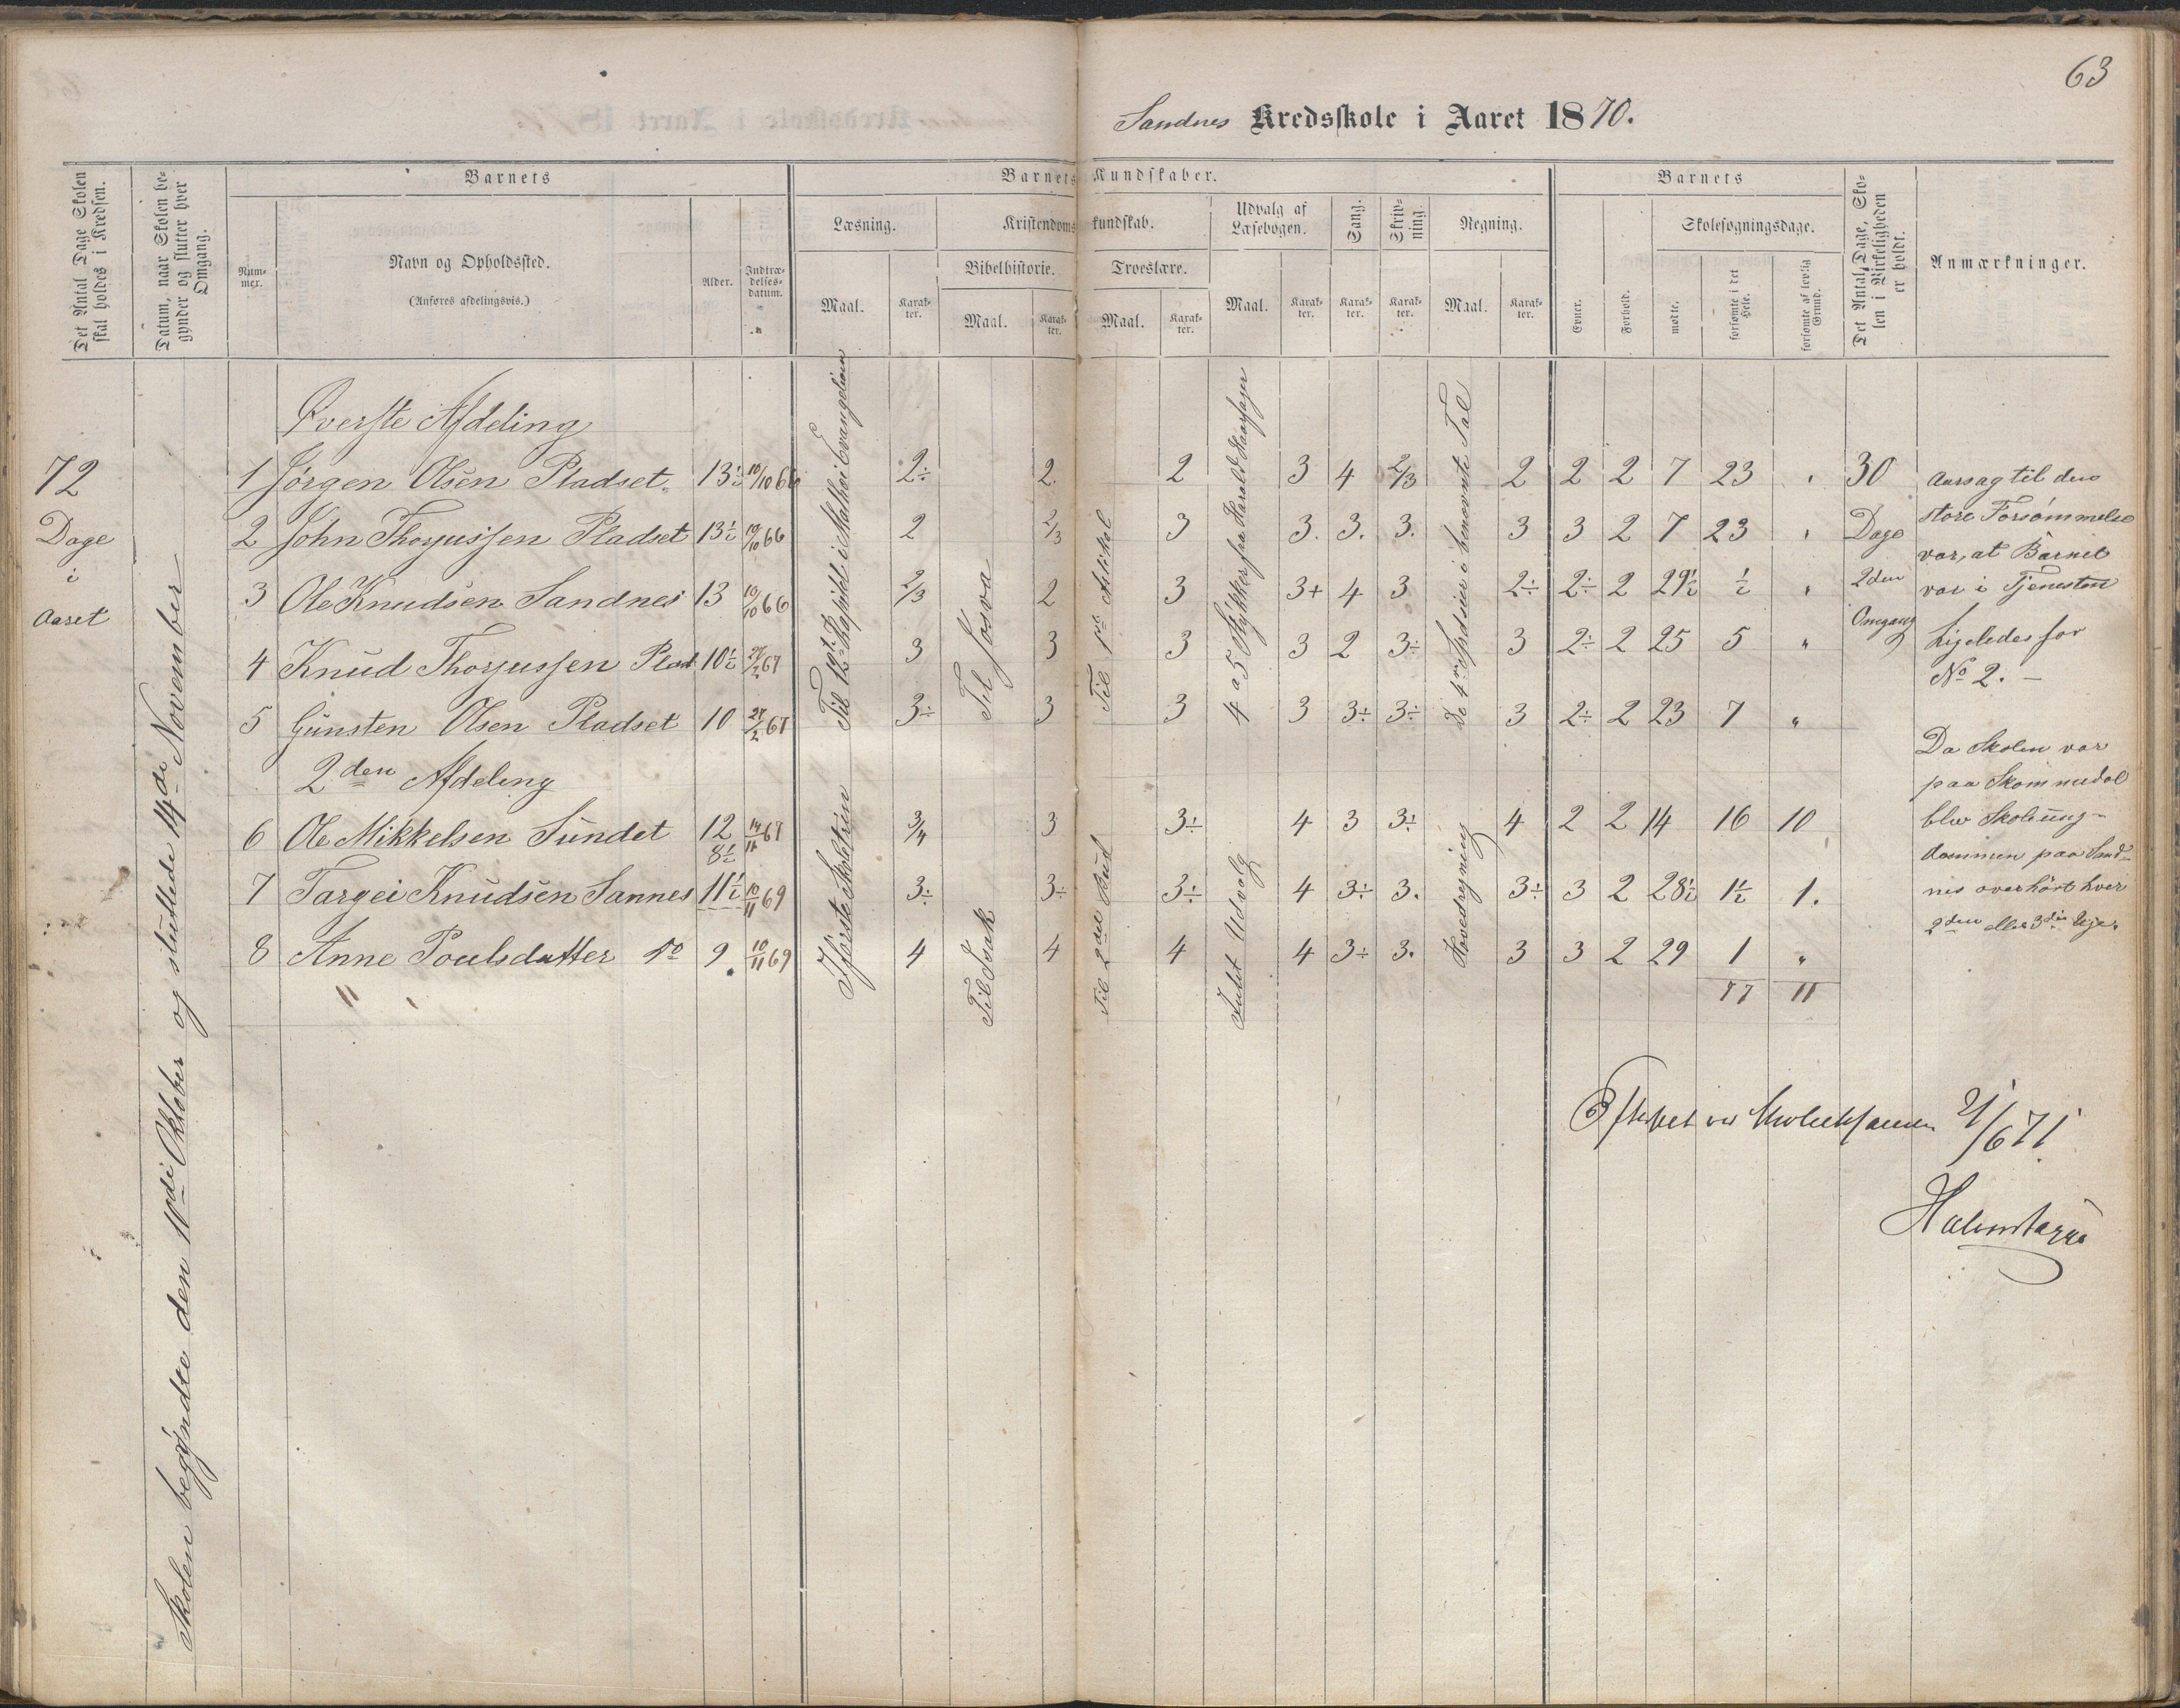 63
Sandnes Kredsskole i Aaret 1870.
Det Antal Dage Skolen skal holdes i Kredsen.
Datum, naar Skolen begynder og slutter hver Omgang.
Barnets
Num-mer.
Navn og Opholdssted.
(Anføres afdelingsvis.)
Alder.
Indtræ-delses-datum.
Barnets Kundskaber.
Læsning.
Maal.
Karak-ter.
Kristendomskundskab.
Bibelhistorie.
Maal.
Karak-ter.
Troeslære.
Maal.
Karak-ter.
Udvalg af Læsebogen.
Maal.
Karak-ter.
Sang.
Karak-ter.
Skriv-ning
Karak-ter.
Regning.
Maal.
Karak-ter.
Barnets
Evner.
Forhold.
Skolesøgningsdage.
mødte.
forsømte i det Hele.
forsømte af lovlig Grund.
Det Antal Dage, Sko-len i Virkeligheden er holdt.
Anmærkninger.
72
Dage
i
Aaret
Skolen begyndte den 10de Oktober og sluttede 14de November
Øverste Afdeling
1 Jörgen Olsen Pladset 13½ 10/10 66 2÷ 2. 2 3 4 2/3 2 2 2 7 23 "
2 John Thorjussen Pladset 13½ 10/10 66 2 2/3 3 3. 3. 3. 3 3 2 7 23 "
3 Ole Knudsen Sandnes 13 10/10 66 2/3 2 3 3+ 4 3 2÷ 2÷ 2 29½ ½ "
4 Knud Thorjussen Plad 10½ 27/2 67 3 3 3 3 2 3÷ 3 2÷ 2 25 5 "
5 Gunsten Olsen Pladset 10 27/2 67 3÷ 3 3 3 3÷ 3÷ 3 2÷ 2 23 7 "
Til 12te Kapitel i Mathæi Evangelium
Til Josva
Til 1ste Artikel
4 a 5 Stykker fra Harald Haarfager
De 4re Spesier i benevnte Tal
2den Afdeling
6 Ole Mikkelsen Sundet 12 14/11 67 3/4 3 3÷ 4 3 3÷ 4 2 2 14 16 10
8½
7 Targei Knudsen Sannes 11½ 10/11 69 3÷ 3÷ 3÷ 4 3÷ 3. 3÷ 3 2 28½ 1½ 1.
8 Anne Poulsdatter do 9 10/11 69 4 4 4 4 3÷ 3. 3 3 2 29 1 "
77 11
I förste Skoletrin
Til Isak
Til 2det Bud
Intet Udvalg
Hovedregning
30
Dage
2den
Omgang
Aarsag til den
store Forsömmelse
var, at Barnet
var i Tjenesten
Ligeledes for
No 2. –
Da Skolen var
paa Skommedal
blev Skoleung-
dommen paa Sand-
nes overhört hver
2den eller 3die Uge.
2/6 71